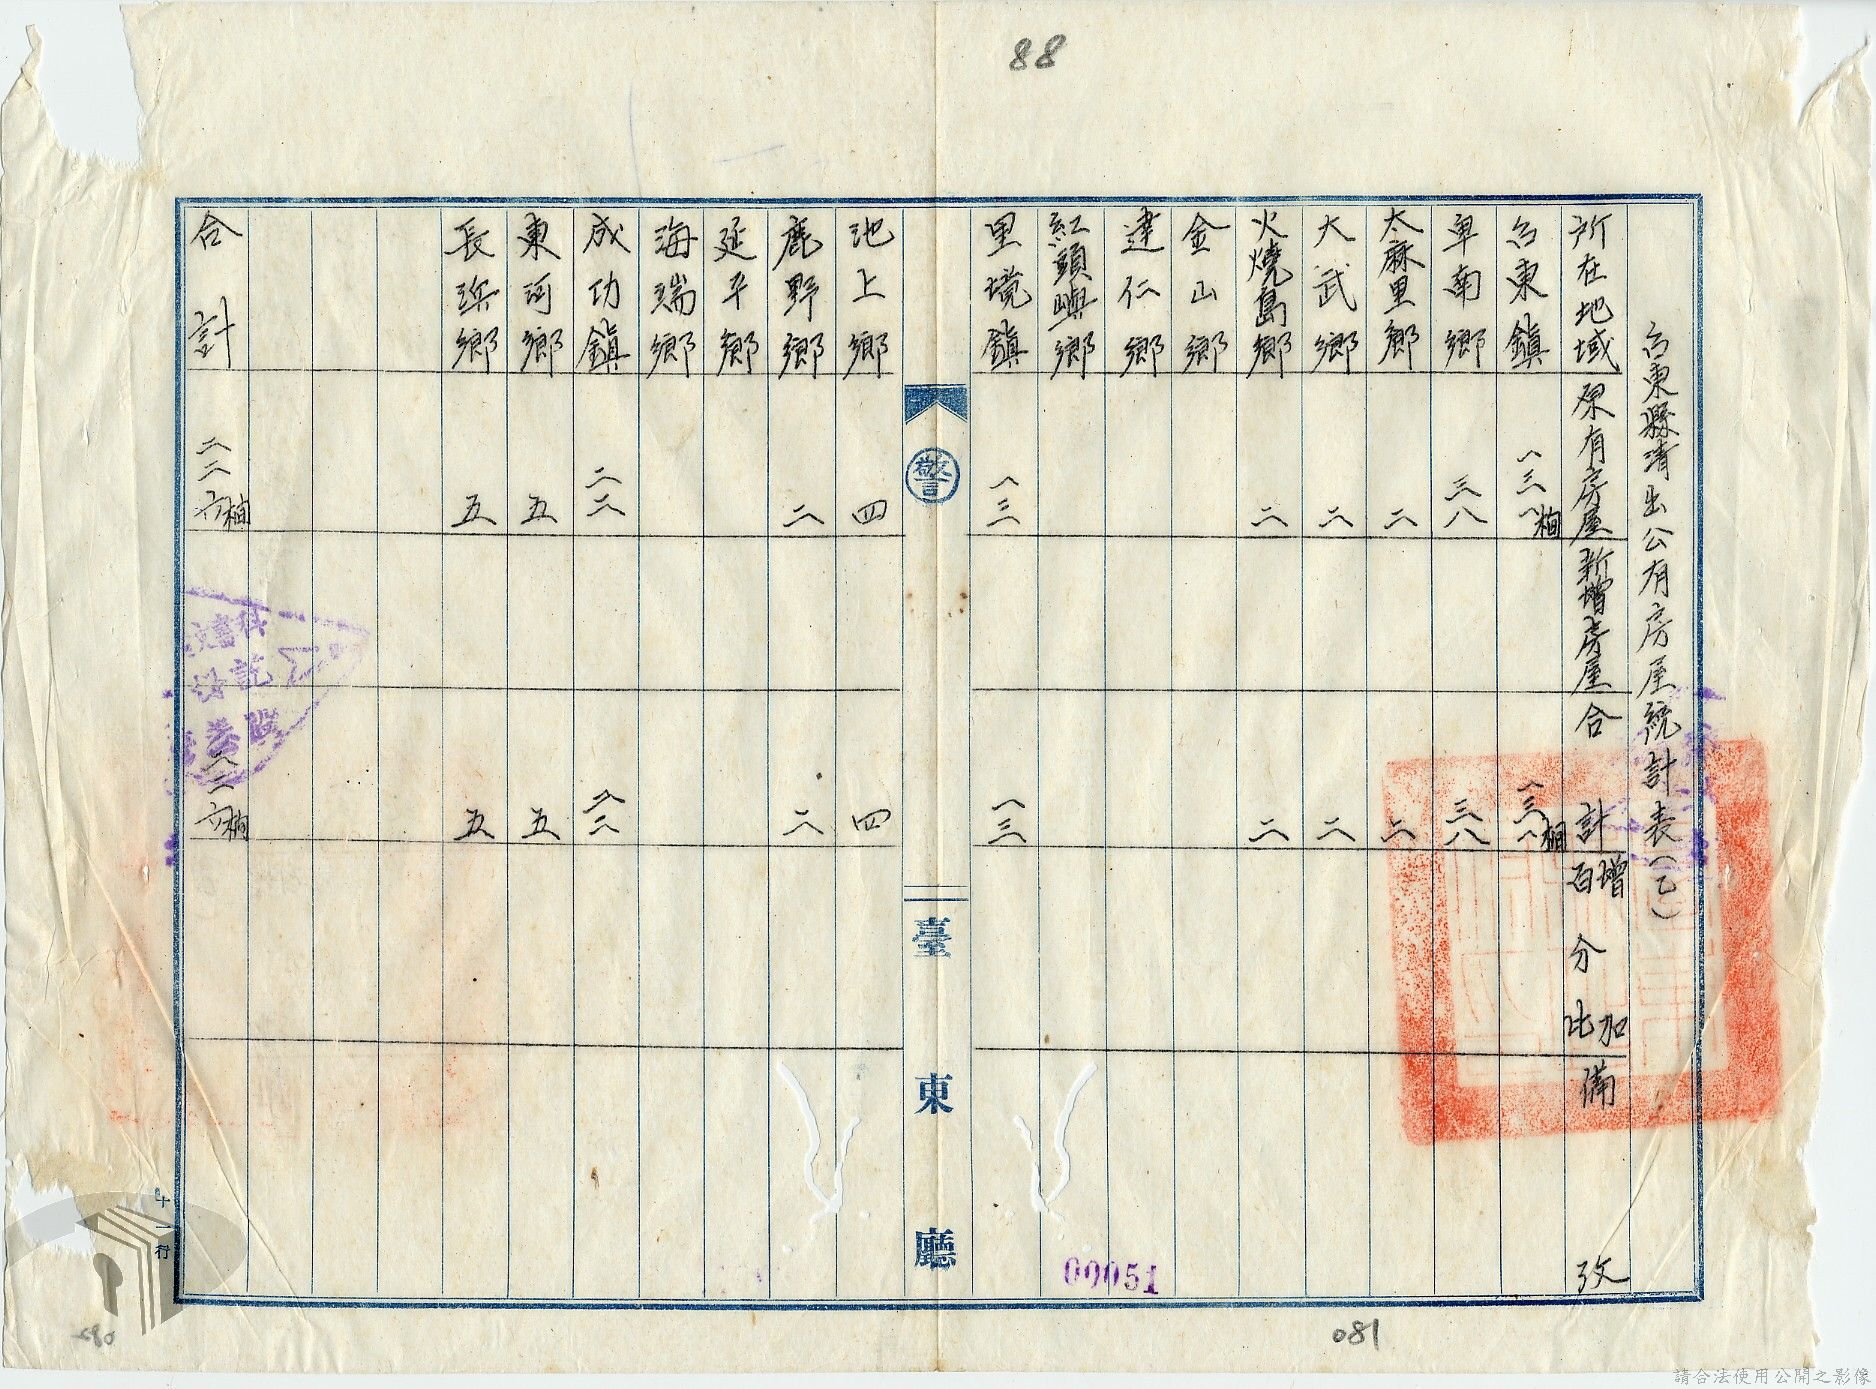 88
台東縣清出公有房屋統計表(乙)
所在地域 原有房屋 新增房屋 合計 增加百分比 備攷
台東鎮 一三一棟 一三一棟
卑南鄉 三八 三八
太麻里鄉 二 二
大武鄉 二 二
火燒島鄉 二 二
金山鄉
達仁鄉
紅頭嶼鄉
里壠鎮 一三 一三
警
臺東廳
池上鄉 四 四
鹿野鄉 二 二
延平鄉
海端鄉
成功鎮
東河鄉 五 五
長浜鄉 五 五
合計
十一行
00051
081
080
請合法使用公開之影像